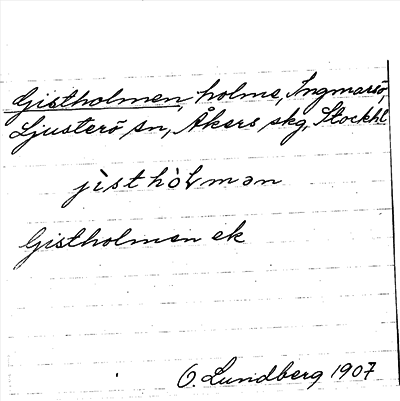 Gistholmen, holme, Ingmarsö,
Ljusterö sn, Åkers skg, Stockhl
jìsthòlmən
Gistholmen ek
O. Lundberg 1907